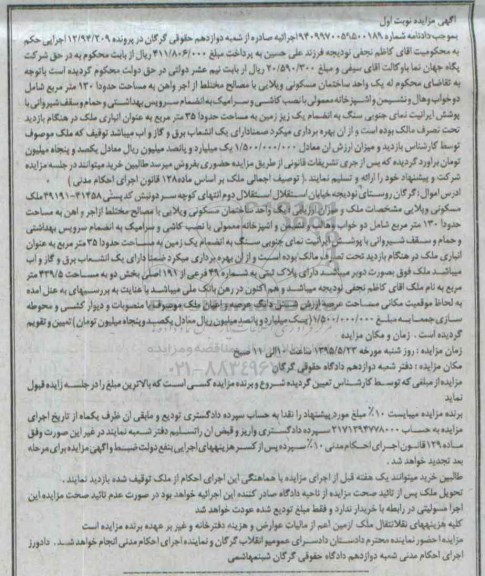 آگهی مزایده نوبت اول
بموجب دادنامه شماره ۹۴۰۹۹۷۰۰۵۱۵۰۰۱۸۹ اجرائیه صادره از شعبه دوازدهم حقوقی گرگان در پرونده ۱۲/۹۴/۲۰۹ اجرایی حکم
به محکومیت آقای کاظم نجفی نودیجه فرزند علی حسین به پرداخت مبلغ ۴۱۱/۸۰۶/۰۰۰ ریال از بابت محکوم به در حق شرکت
پگاه جهان نما باوکالت آقای سیفی و مبلغ ۲۰/۵۹۰/۳۰۰ ریال از بابت نیم عشر دولتی در حق دولت محکوم گردیده است باتوجه
به تقاضای محکوم له یک واحد ساختمان مسکونی ویلایی با مصالح مختلط از آجر واهن به مساحت حدودا ۱۳۰ متر مربع شامل
دو خواب وهال ونشیمن و اشپزخانه معمولی با نصب کاشی وسرامیک به انضمام سرویس بهداشتی وحمام وسقف شیروانی با
پوشش ایرانیت نمای جنوبی سنگ به انضمام یک زیر زمین به مساحت حدودا ۳۵ متر مربع به عنوان انباری ملک در هنگام بازدید
تحت تصرف مالک بوده است و از ان بهره برداری میکرد ضمنادارای یک انشعاب برق و گاز و اب میباشد توقیف که ملک موصوف
توسط کارشناس بازدید و میزان ارزش ان معادل ۱/۵۰۰/۰۰۰/۰۰۰ یک میلیارد و پانصد میلیون ریال معادل یکصد و پنجاه میلیون
تومان براورد گردیده که پس از جری تشریفات قانونی از طریق مزایده حضوری بفروش میرسد طالبین خرید میتوانند در جلسه مزایده
شرکت و پیشنهاد خود را ارائه و تسلیم نمایند .( توصیف اجمالی ملک بر اساس ماده۱۲۸ قانون اجرای احکام مدنی )
ادرس اموال: گرگان روستای نودیجه خیابان استقلال استقلال دوم انتهای کوچه سردونبش کد پستی ۴۱۴۵۸-۴۹۱۹۱ ملک
مسکونی ویلایی مشخصات ملک و میزان ارزیابی : یک واحد ساختمان مسکونی ویلایی با مصالح مختلط ازاجر و اهن به مساحت
حدودا ۱۳۰ متر مربع شامل دو خواب وهال و نشیمن و اشپزخانه معمولی با نصب کاشی و سرامیک به انضمام سرویس بهداشتی
و حمام و سقف شیروانی با پوشش ایرانیت نمای جنوبی سنگ به انضمام یک زمین به مساحت حدودا ۳۵ متر مربع به عنوان
انباری ملک در هنگام بازدید تحت تصرف مالک بوده است و از ان بهره برداری میکرد ضمنا دارای یک انشعاب برق و گاز و اب
میباشد ملک فوق بصورت دوبر میباشد دارای پلاک ثبتی به شماره ۴۹ فرعی از ۱۹۱ اصلی بخش دو به مساحت ۴۳۹/۵ متر
مربع به نام ملک اقای کاظم نجفی نودیجه میباشد و هم اکنون در رهن بانک ملی میباشد با عنایت به بررسیهای به عمل امده
به لحاظ موقعیت مکانی مساحت عرصه ارزش شش دانگ عرصه و اعیان ملک موصوف با منصوبات و دیوار کشی و محوطه
سازی جمعا به مبلغ ۱/۵۰۰/۰۰۰/۰۰۰ (یک میلیارد و پانصد میلیون ریال معادل یکصد و پنجاه میلیون تومان) تعیین و تقویم
گردیده است . زمان و مکان مزایده
زمان مزایده : روز شنبه مورخه ۱۳۹۵/۵/۲۳ ساعت ۱۰ الی ۱۱ صبح
مکان مزایده : دفتر شعبه دوازدهم دادگاه حقوقی گرگان
مزایده از مبلغی که توسط کارشناس تعیین گردیده شروع و برنده مزایده کسی است که بالاترین مبلغ را در جلسه زایده قبول
نماید
برنده مزایده میبایست ۱۰٪ مبلغ مورد پیشنهاد را نقدا به حساب سپرده دادگستری تودیع و مابقی ان ظرف یکماه از تاریخ اجرای
مزایده به حساب ۲۱۷۱۲۹۴۷۷۸۰۰۰ سپرده دادگستری واریز و قبض ان راتسلیم دفتر شعبه نمایند در غیر این صورت وفق
ماده ۱۲۹ قانون اجرای احکام مدنی ۱۰٪ سپرده پس از کسر هزینههای اجرایی بنفع دولت ضبط و آگهی مزایده برای مرحله
بعد تجدید خواهد شد .
طالبین خرید میتوانند یک هفته قبل از اجرای مزایده با هماهنگی این اجرای احکام از ملک توقیف شده بازدید نمایند .
تحویل ملک پس از تائید صحت مزایده از ناحیه دادگاه صادر کننده این اجرائیه خواهد بود در صورت عدم تائید صحت مزایده این
اجرا مسولیتی در رابطه با خریدار ندارد و فقط مبلغ تودیع شده عودت خواهد شد
کلیه هزینههای نقلانتقال ملک ازمین اعم از مالیات عوارض و هزینه دفترخانه و غیر بر عهده برنده مزایده است
مزایده احضور نماینده محترم دادستان دادسرای عمومیو انقلاب گرگان و نماینده اجرای احکام مدنی انجام خواهد شد. دادورز
اجرای احکام مدنی شعبه دوازدهم دادگاه حقوقی گرگان شینمهاشمی